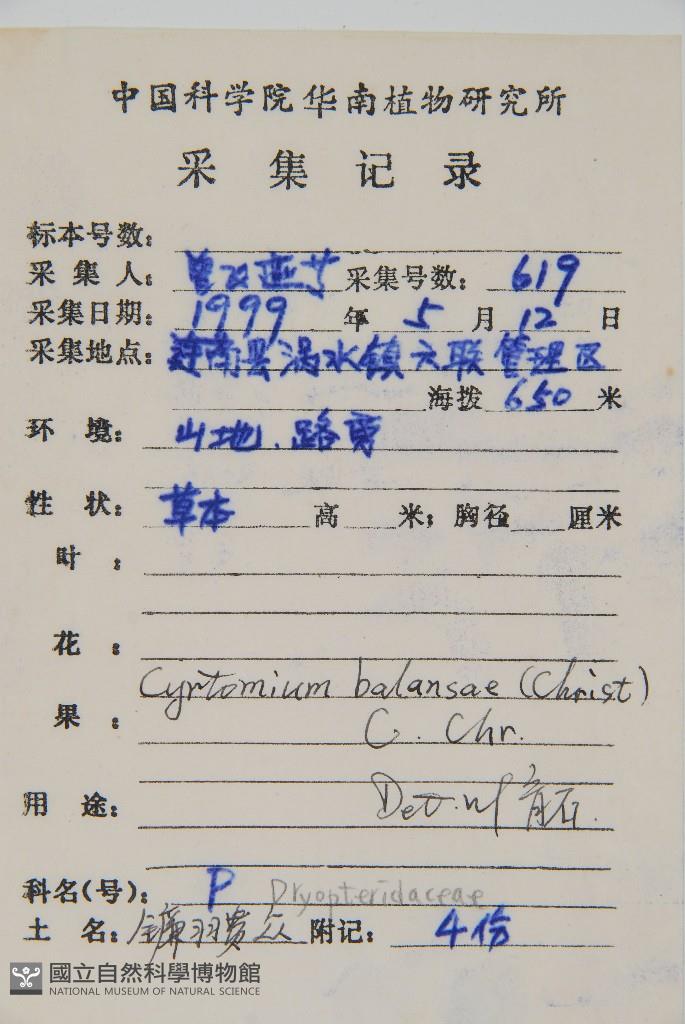 中国科学院华南植物研究所
采集记录
标本号数：
采集人： 曾飞燕 采集号数： 619
采集日期： 1999 年 5 月 12 日
采集地点： 连南县涡水镇六联管理区
海拨 650 米
环境： 山地．路旁
性状： 草本 高 米；胸径 厘米
叶：
花：
Cyrtomium balansae (Christ)
果： C. Chr.
用途： Det.
科名(号)： P Dryopteridaceae
土名： 镰羽贯众 附记： 4份
國立自然科學博物館
NATIONAL MUSEUM OF NATURAL SCIENCE